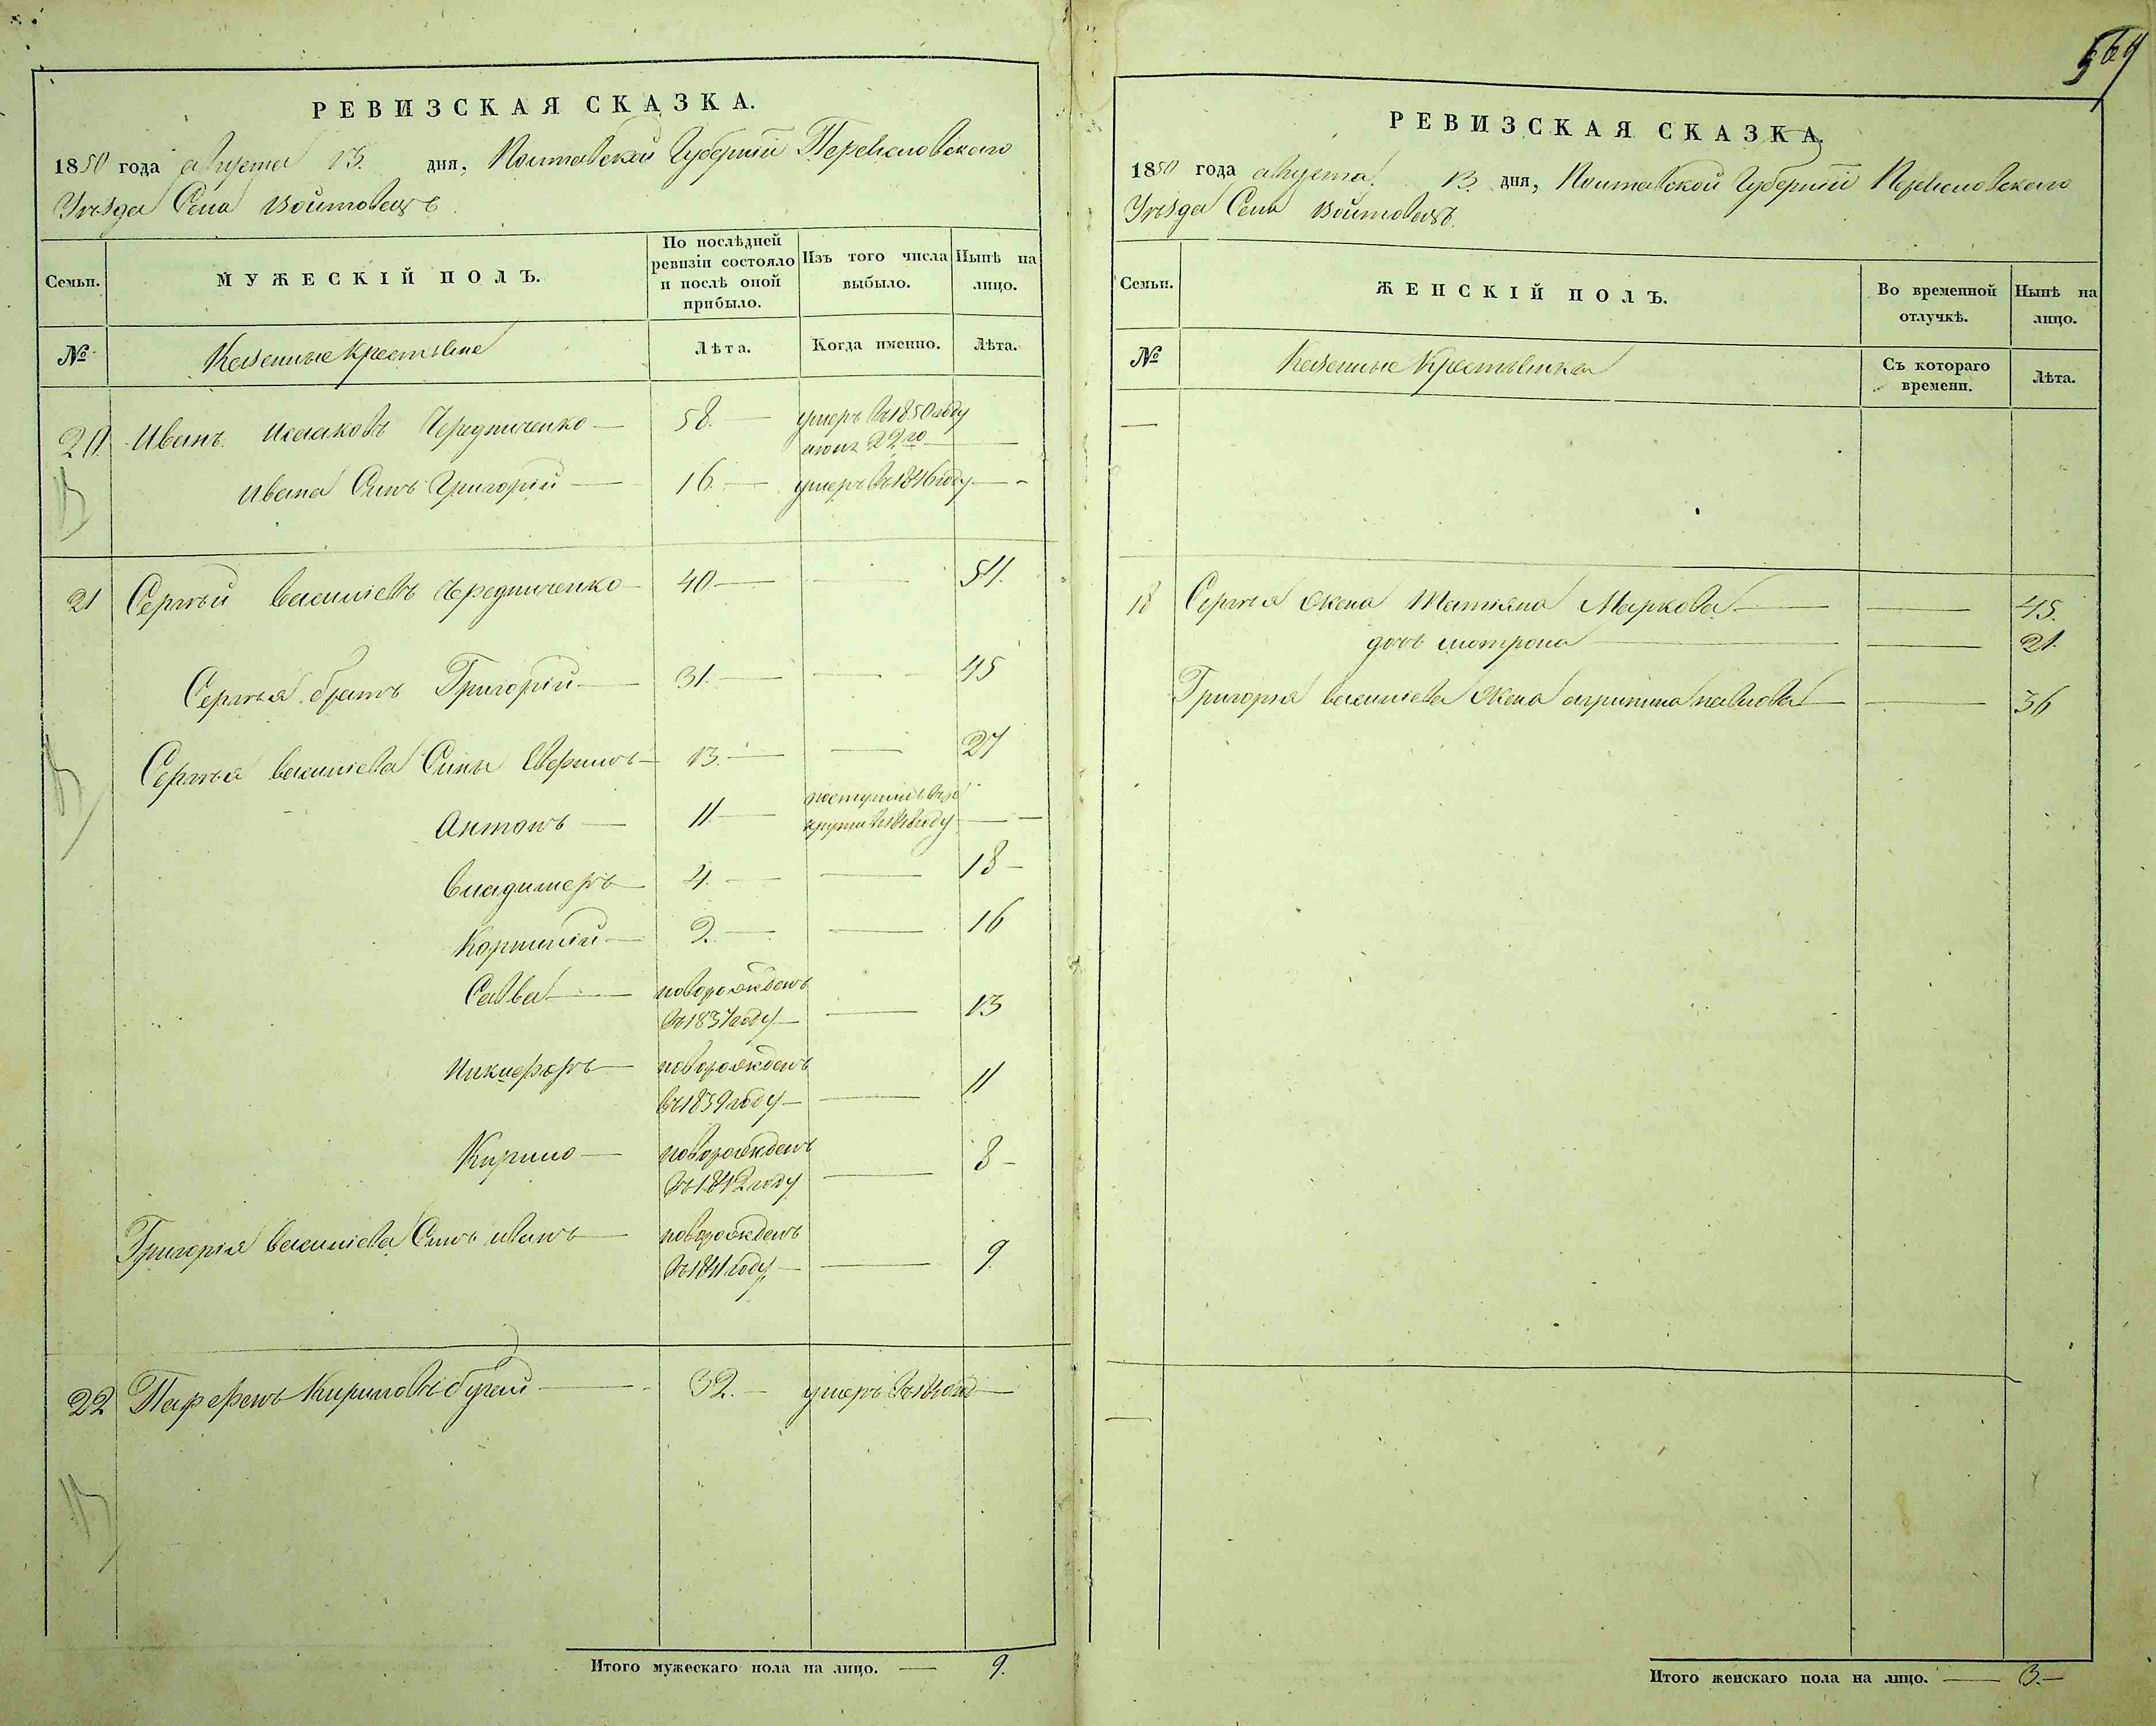 569
РЕВИЗСКАЯ СКАЗКА.
1850 года августа 13. дня, Полтавской Губернии Переясловского
Уѣзда Села Войтовецъ
Семьи.
МУЖЕСКІЙ ПОЛЪ.
По послѣдней ревизіи состояло и послѣ оной прибыло.
Изъ того числа выбыло.
Нынѣ на лицо.
№
Казенные крестьяне
Лѣта.
Когда именно.
Лѣта.
20 Иванъ Исааковъ Чередниченко — 58. — умеръ въ 1850 году
июня 22го —
Ивана Сынъ Григорій — 16. — умеръ въ 1846 году —
21 Сергѣй Василіевъ Чередниченко 40 — — 54.
Сергѣя братъ Григорій — 31. — — 45
Сергѣя Василіева Сыны Аверьянъ — 13. — — 27
Антонъ — 11 — поступилъ въ ре
круты въ году —
Владимеръ — 4. — — 18 —
Корнилій — 2. — — 16
Савва — новорожденъ
въ 1837 году — — 13
Никифоръ — новорожденъ
въ 1839 году — — 11
Кирило — новорожденъ
въ 1842 году — 8 —
Григорія Василіева Сынъ иванъ — новорожденъ
въ 1841 году — — 9.
22 Парфенъ Кириловъ — 32. — умеръ —
Итого мужескаго пола на лицо. — 9.
РЕВИЗСКАЯ СКАЗКА.
1850 года августа. 13 дня, Полтавской Губернии Переясловского
Уѣзда Села Войтовецъ
Семьи.
ЖЕНСКІЙ ПОЛЪ.
Во временной отлучкѣ.
Нынѣ на лицо.
№
Казенные Крестьянки
Съ котораго времени.
Лѣта.
—
18 Сергѣя жена Татіяна Маркова — — 45.
дочь мотрона — — 21.
Григорія Василіева жена агрипина павлова — — 36
—
Итого женскаго пола на лицо. — 3. —